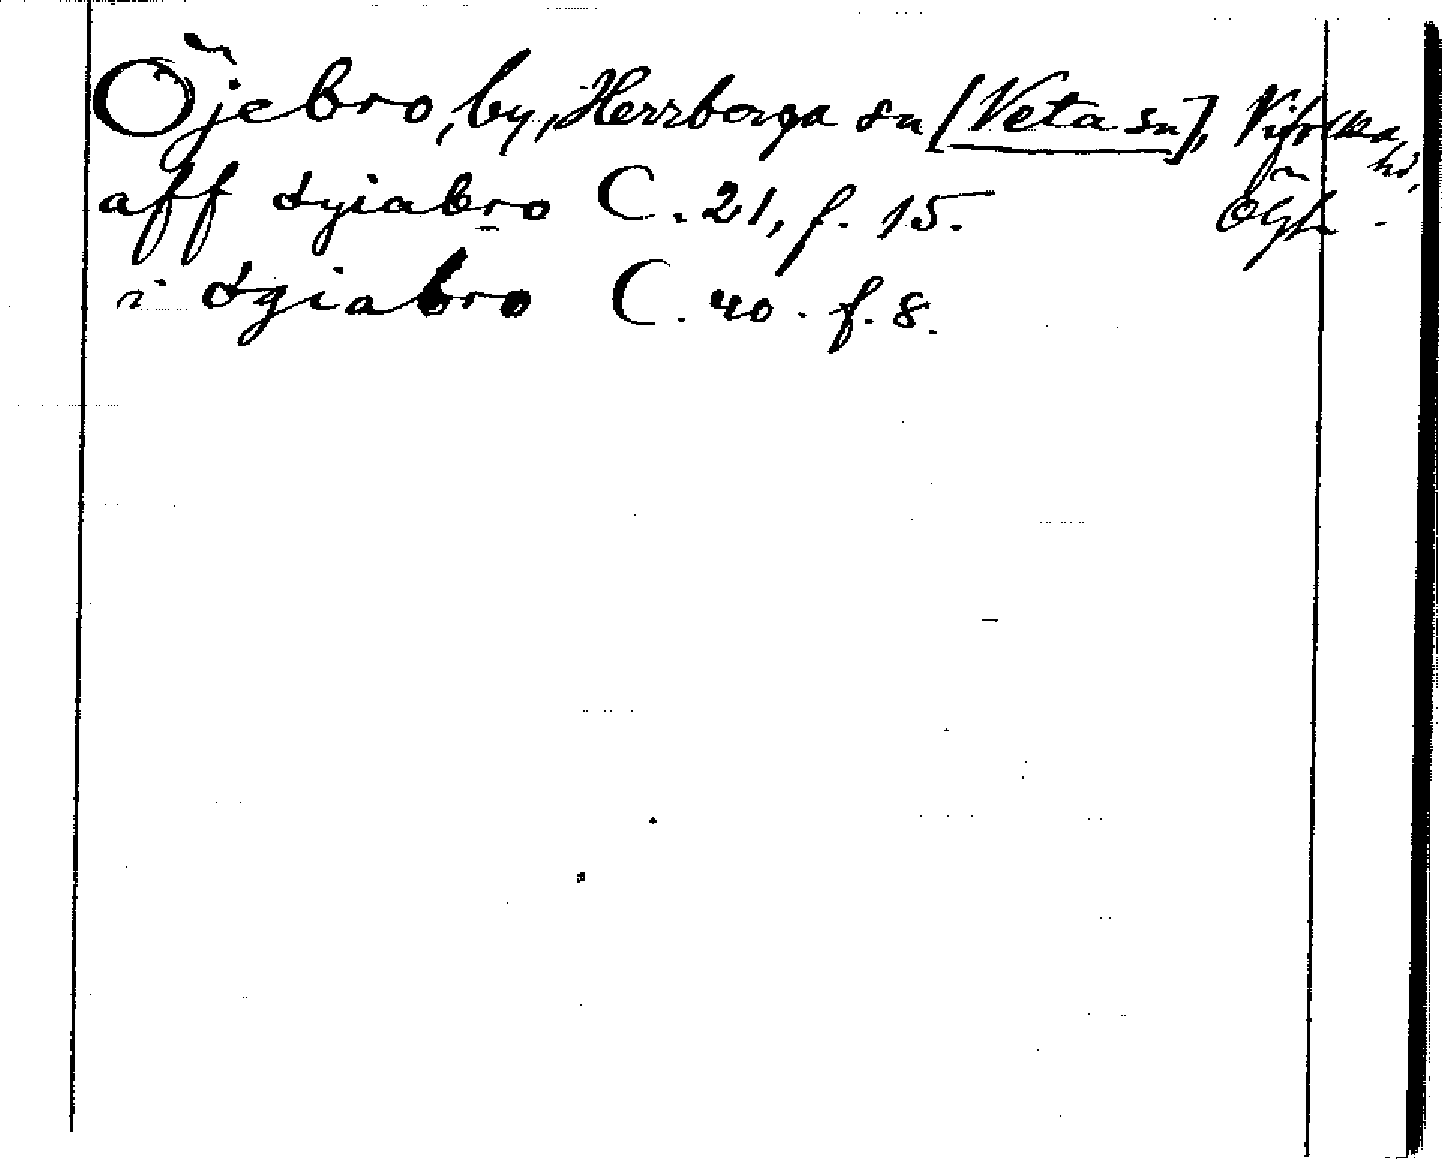 Öjebro, by, Herrberga sn [Veta sn], Vifolka hd,
ÖGtl.
aff øyiabro C. 21, f. 15.
i øgiabro C. 40. f. 8.